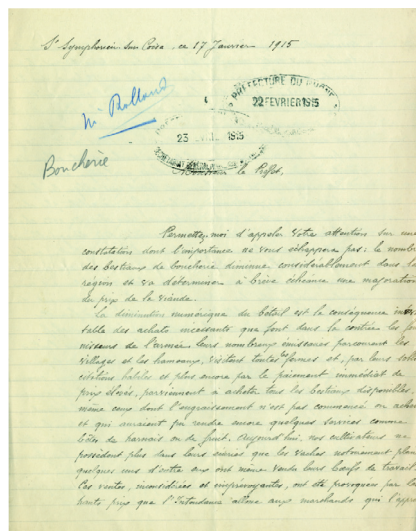 St Symphorien sur Coise, ce 17 Janvier 1915
Mr Rolland
PREFECTURE DU RHONE
22 FEVRIER 1915
23 1915
Boucherie
Monsieur le Préfet,
Permettez-moi d'appeler Votre attention sur une
constatation dont l'importance ne vous échappera pas: le nombre
des bestiaux de boucherie diminue considérablement dans la
région et va déterminer à brève échéance une majoration
du prix de la viande.
La diminution numérique du bétail est la conséquence inévi-
table des achats incessants que font dans la contrée les four-
nisseurs de l'armée leurs nombreux émissaires parcourent les
villages et les hameaux, visitant toutes les fermes et, par leurs solli-
citations habiles et plus encore par le paiement immédiat de
prix élevés, parviennent à acheter tous les bestiaux disponibles,
même ceux dont l'engraissement n'est pas commencé ou achevé
et qui auraient pu rendre encore quelques services comme
bêtes de harnais ou de Aujourd'hui, nos cultivateurs ne
possèdent plus dans leurs écuries que les vaches notoirement pleines
quelques uns d'entre eux ont même vendu leurs bœufs de travail.
Ces ventes, inconsidérées et imprévoyantes, ont été provoquées par les
hauts prix que l'Intendance alloue aux marchands qui l'appro